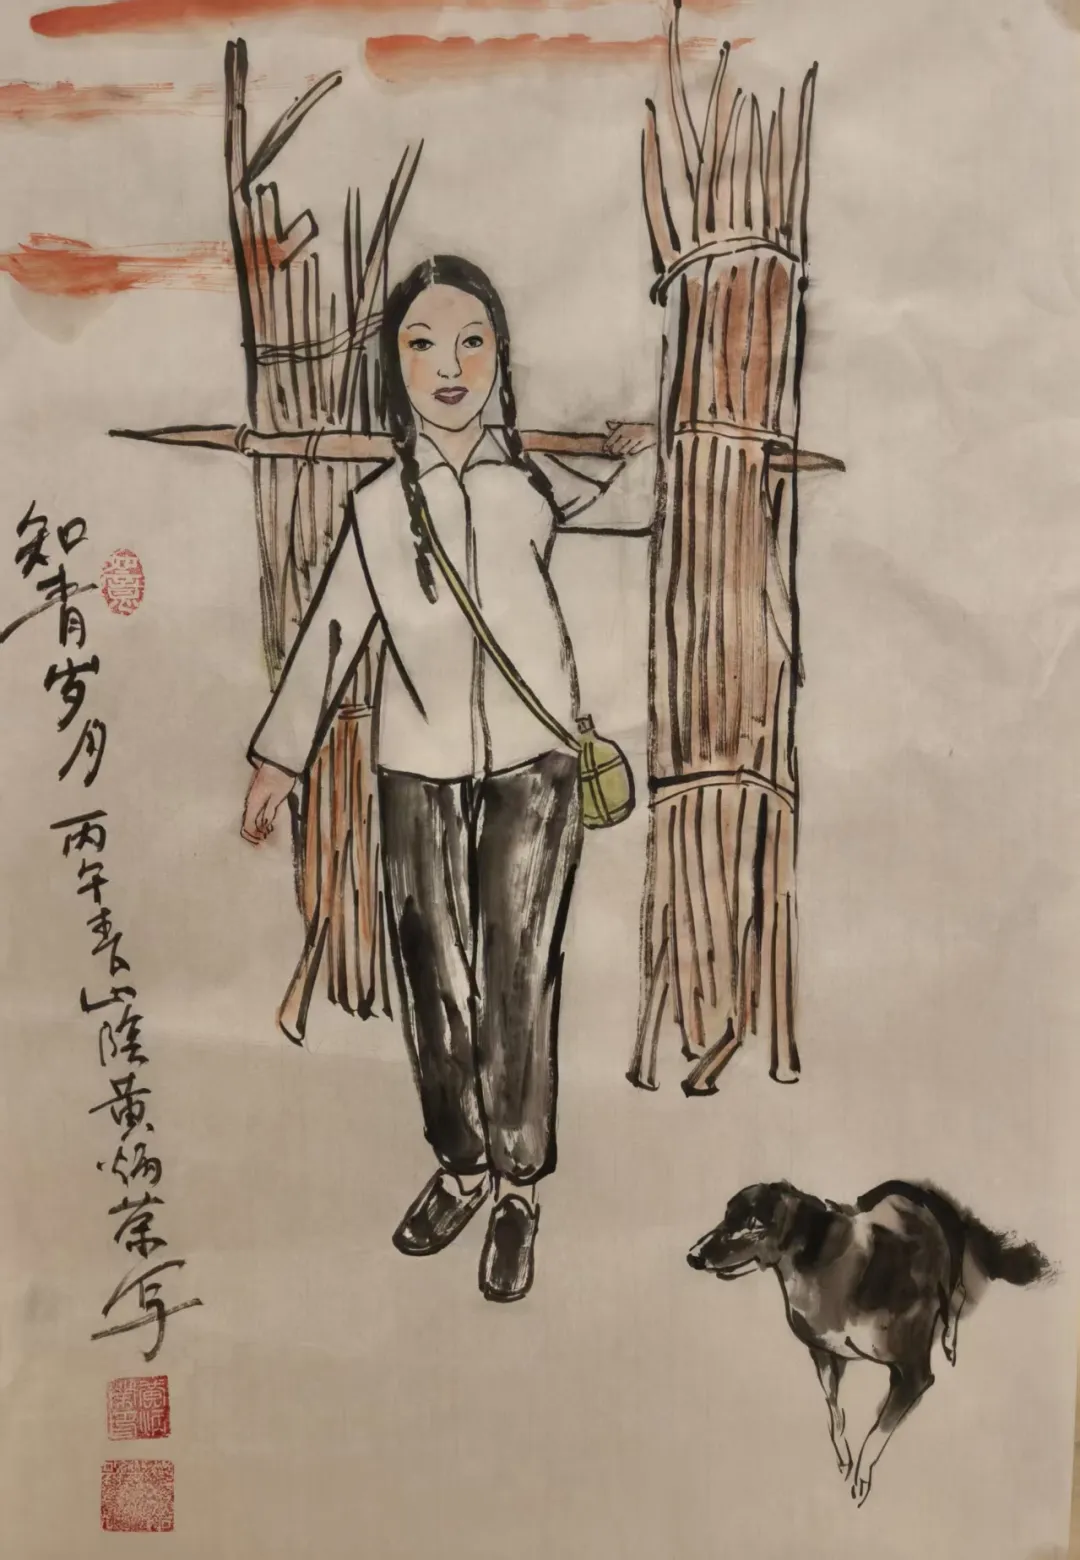 知青岁月
丙午春山陰黄炳荣写